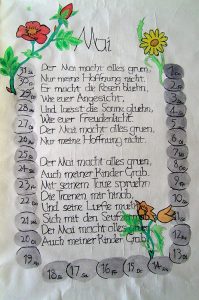 Mai
Der Mai macht alles gruen,
Nur meine Hoffnung nicht.
Er macht die Rosen bluehn,
Wie euer Angesicht,
Und laesst die Sonne gluehn,
Wie euer Freudenlicht.
Der Mai macht alles gruen,
Nur meine Hoffnung nicht.
Der Mai macht alles gruen,
Auch meiner Kinder Grab.
Mit seinem Taue spruehn
Die Traenen mir hinab,
Und seine Luefte
Sich mit den
Der Mai macht alles
Auch meiner Kinder Grab.
31
30
29
28
27
26
25
24
23
22
21
20
19
18
17
16
15
14
13
12
11
10
9
8
7
6
5